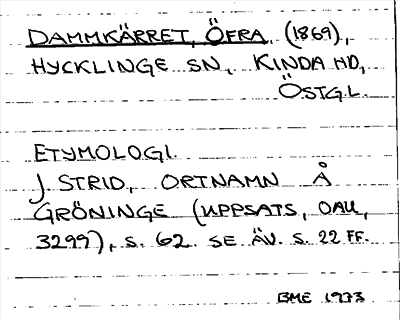 DAMMKÄRRET, ÖFRA, (1869),
HYCKLINGE SN, KINDA HD,
ÖSTG.L.
ETYMOLOGI.
J. STRID, ORTNAMN Å
GRÖNINGE (UPPSATS, OAU,
3299), S. 62. SE ÄV. S. 22 FF.
BME 1973